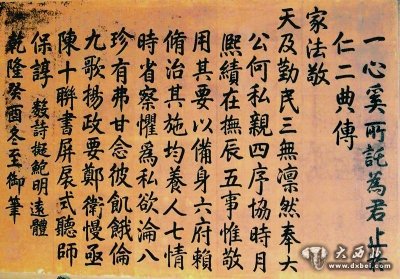 一心奚所託為君止於
仁二典傳
家法敬
天及勤民三無凜然奉大
公何私親四序協時月
熙績在撫辰五事惟敬
用其要以備身六府賴
脩治其施均養人七情
時省察懼爲私欲淪八
珍有弗甘念彼飢餓倫
九歌揚政要鄭衛慢亟
陳十聯書屏扆式聽師
保諄 數詩擬鮑明遠體
乾隆癸酉冬至御筆
大西北
www.dxbei.com